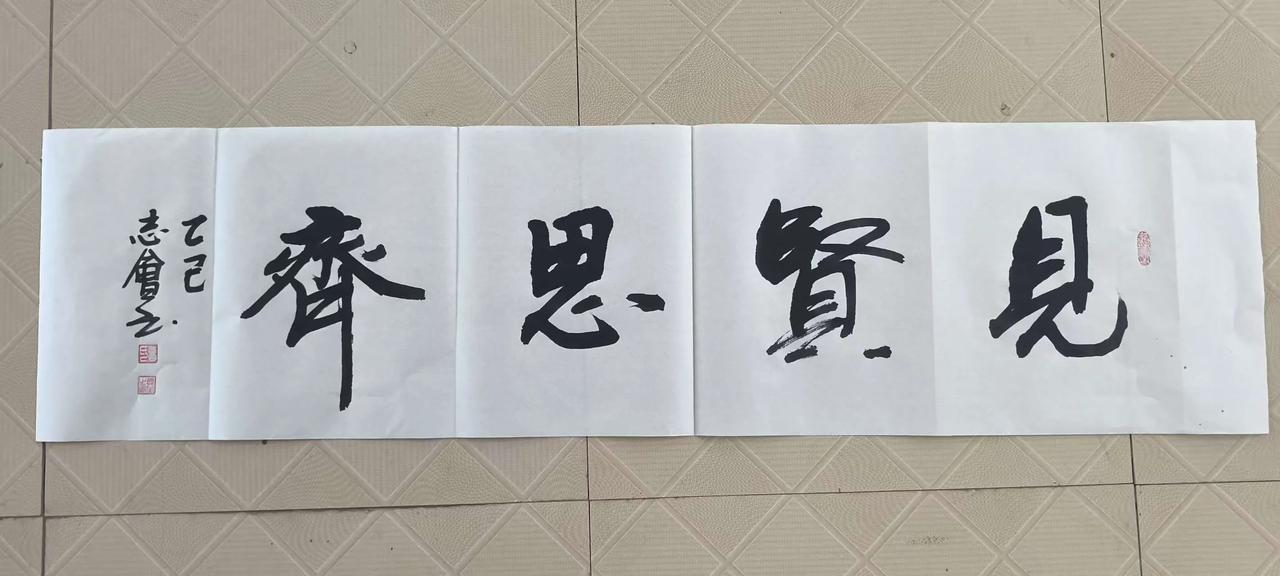 見賢思齊
乙巳
志會之